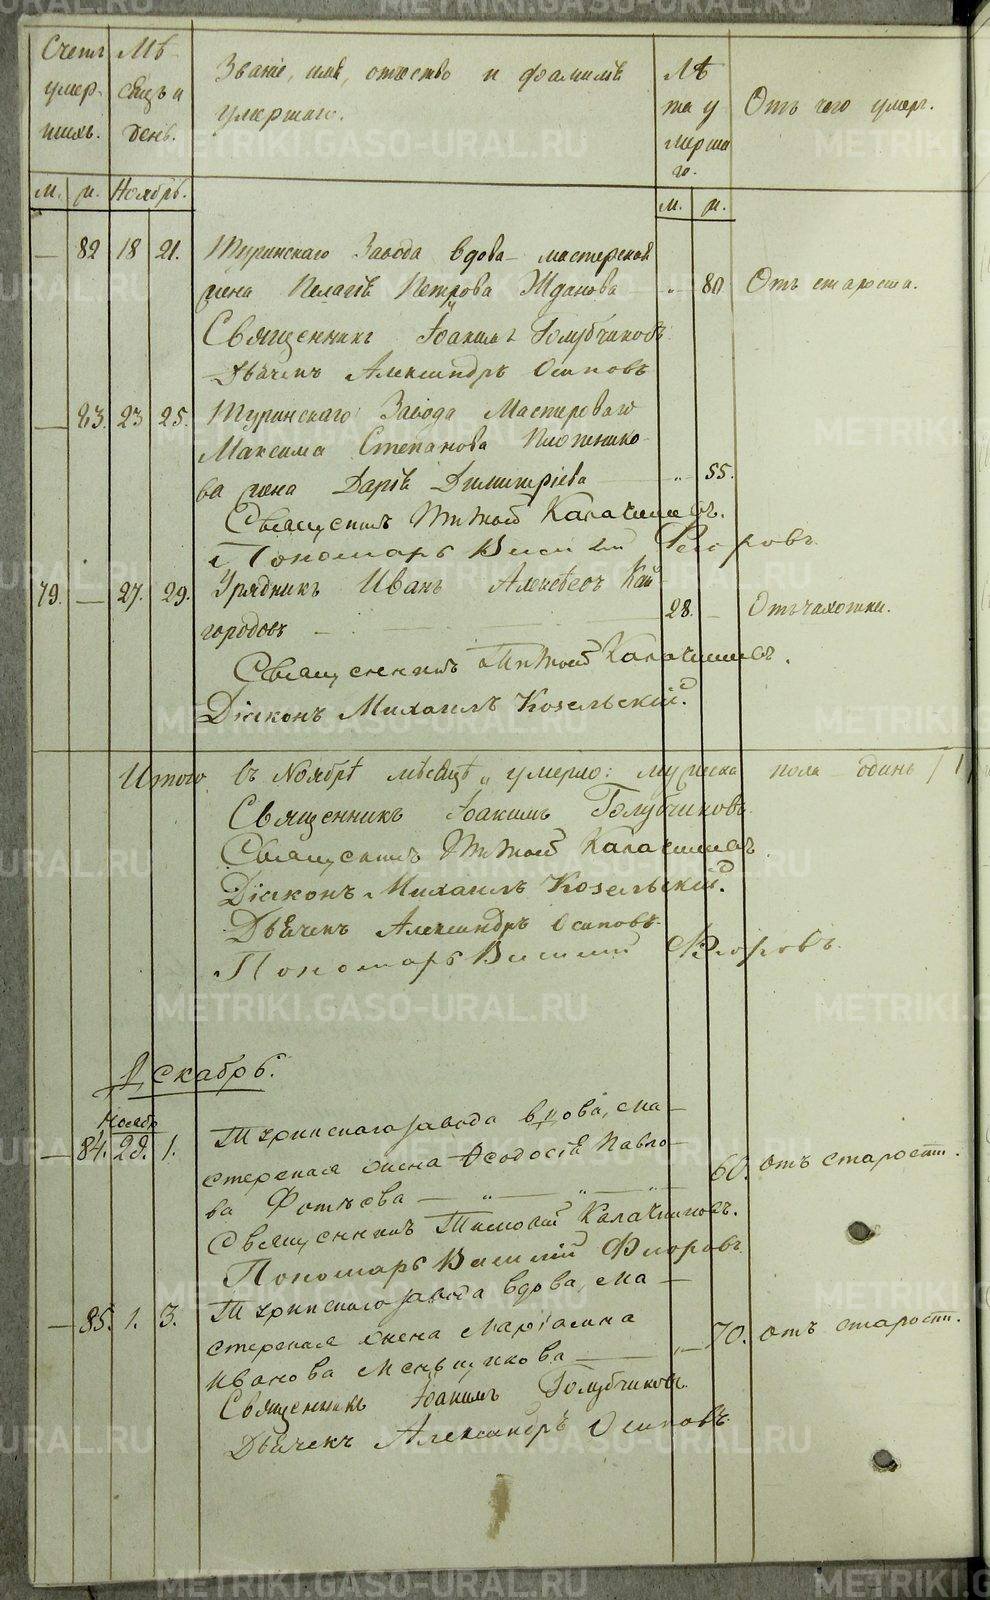 Счетъ умер-шихъ.
Мѣ-сяцъ и день.
Званіе, имя, отчество и фамилія умершаго.
Лѣта умершаго.
Отъ чего умеръ.
м. ж. Ноябрь. м. ж.
— 82 18 21. Туринскаго Завода вдова мастерская
жена Пелагія Петрова Жданова — „ — 80 Отъ старости.
Священникъ Іоакимъ Голубчиковъ
Дьячекъ Александръ Осиповъ
— 83. 23 25. Туринскаго Завода Мастероваго
Максима Степанова Плотнико-
ва жена Дарія Димитріева — „ 55.
Священникъ Тимофей Калачниковъ.
Пономарь Василій Флоровъ
79. — 27. 29. Урядникъ Иванъ Алексѣевъ Кай-
городовъ — 28. — Отъ чахотки.
Священникъ Тимофей Калачниковъ.
Діаконъ Михаилъ Козельскій.
Итого въ Ноябрѣ мѣсяцѣ „ умерло: мужеска пола одинъ /1/
Священникъ Іоакимъ Голубчиковъ
Священникъ Тимофей Калачниковъ
Діаконъ Михаилъ Козельскій.
Дьячекъ Александръ Осиповъ
Пономарь Василій Флоровъ.
Декабрь.
Ноябр
— 84. 28. 1. Туринскаго завода вдова, ма-
стерская жена Ѳеодосія Павло-
ва Фотѣева — „ — „ — „ — 60. отъ старости.
Священникъ Тимофей Калачниковъ.
Пономарь Василій Флоровъ
— 85. 1. 3. Туринскаго завода вдова, ма-
стерская жена Маріамна
Иванова Меньщикова — „ — 70. отъ старости.
Священникъ Іоакимъ Голубчиковъ
Дьячекъ Александръ Осиповъ
METRIKI.GASO-URAL.RU